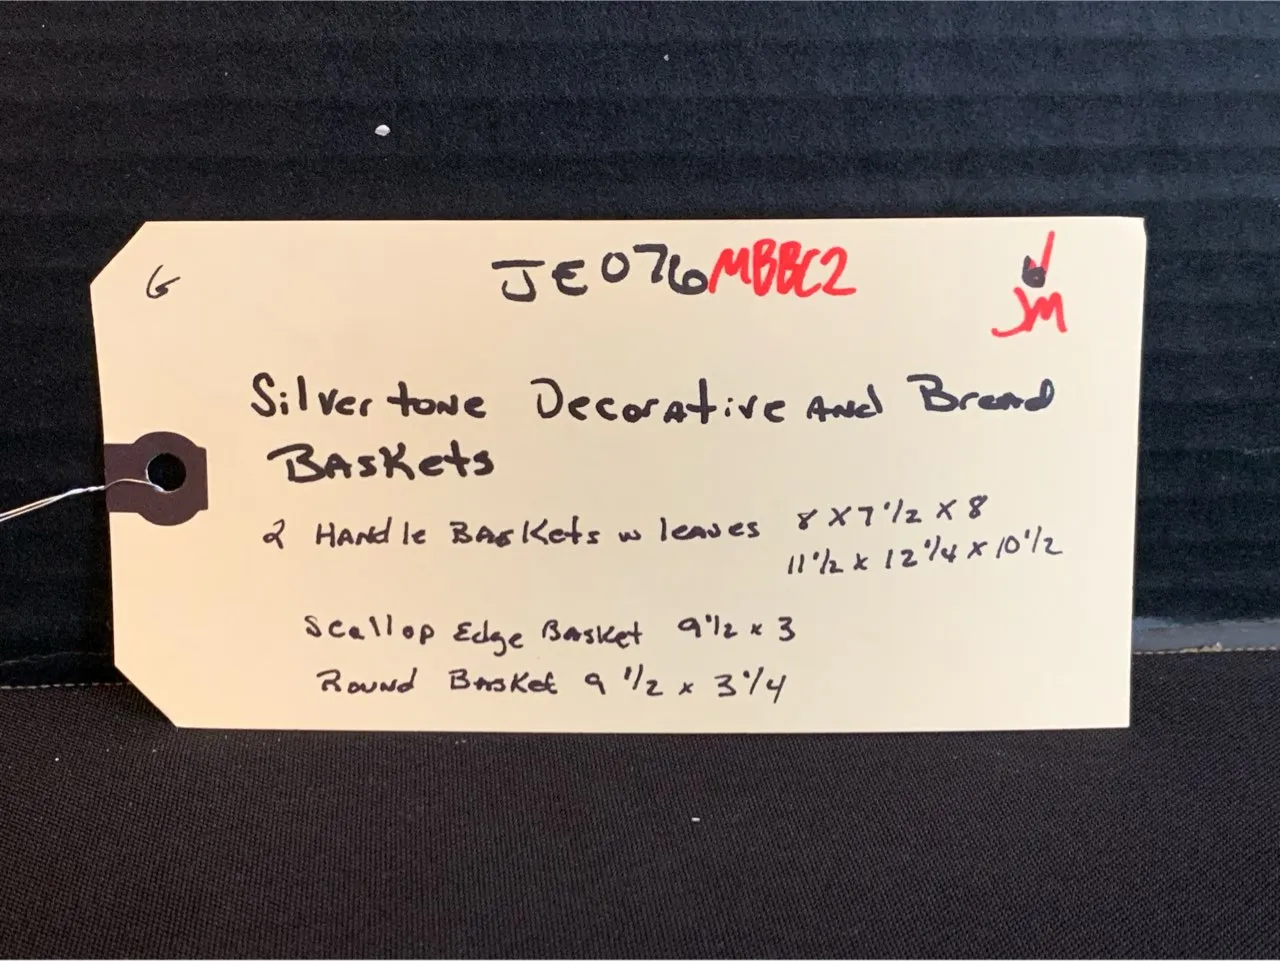 G JE076 MBBC2 6
JM
Silvertone Decorative And Bread
Baskets
2 Handle Baskets w leaves 8 x 7 1/2 x 8
11 1/2 x 12 1/4 x 10 1/2
Scallop Edge Basket 9 1/2 x 3
Round Basket 9 1/2 x 3 1/4